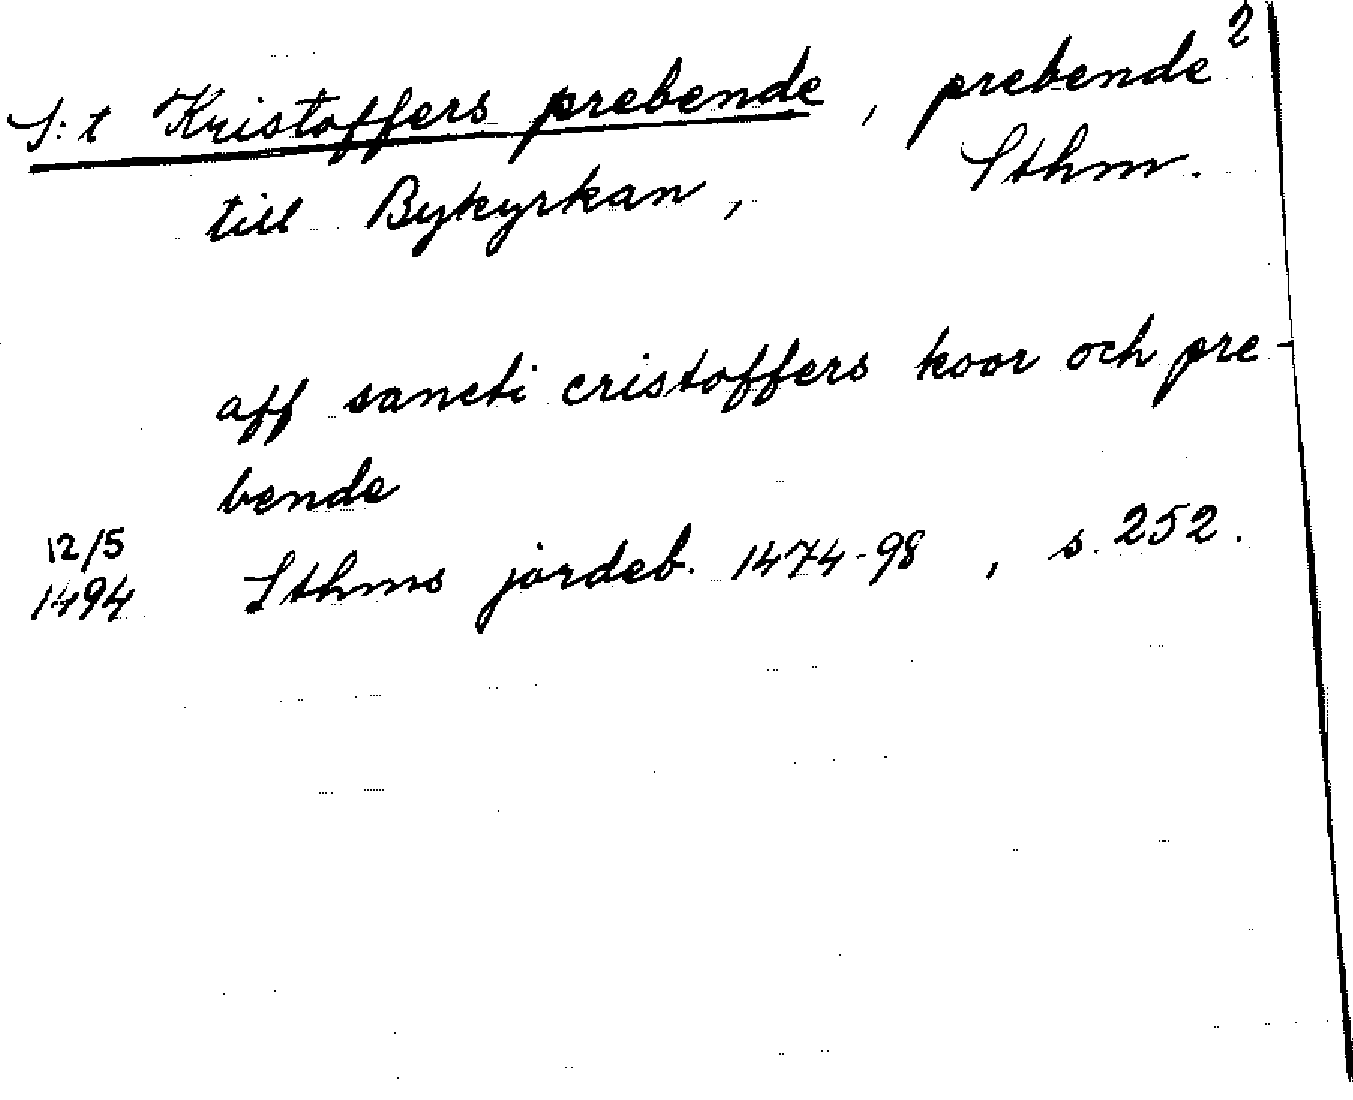 2
S:t Kristoffers prebende, prebende
till Bykyrkan, Sthm.
aff sancti cristoffers koor och pre-
bende
12/5
1494 Sthms jordeb. 1474-98, s. 252.